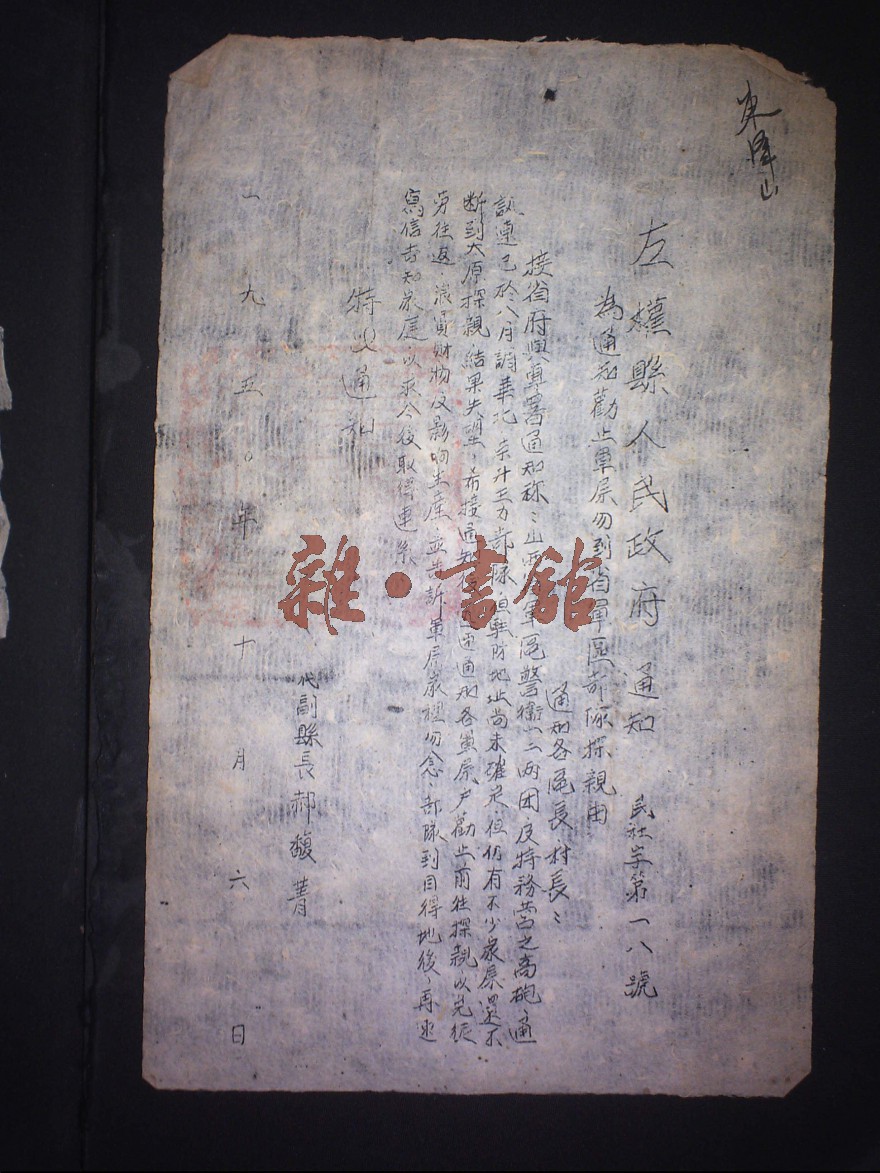 東 山
左權縣人民政府通知 民社字第一八號
為通知勸止軍屬勿到省軍區部隊探親由
通知各區長村長：
接省府與專署通知称：山西 軍區警衛一二两团及特務营之高砲、通
訊連已於八月調華北 部隊 駐防地址尚未確定，但仍有不少家屬還不
断到太原探親，結果失望，希接通知 通知各軍属户勸止前往探親以免徒
劳往返、浪費財物及影响生產，並告訴軍属家裡勿念，部隊到目得地後，再来
寫信告知家庭，以求今後取得連系。
特此通知
代副縣長郝馥菁
一九五〇年十月六日
雜·書館